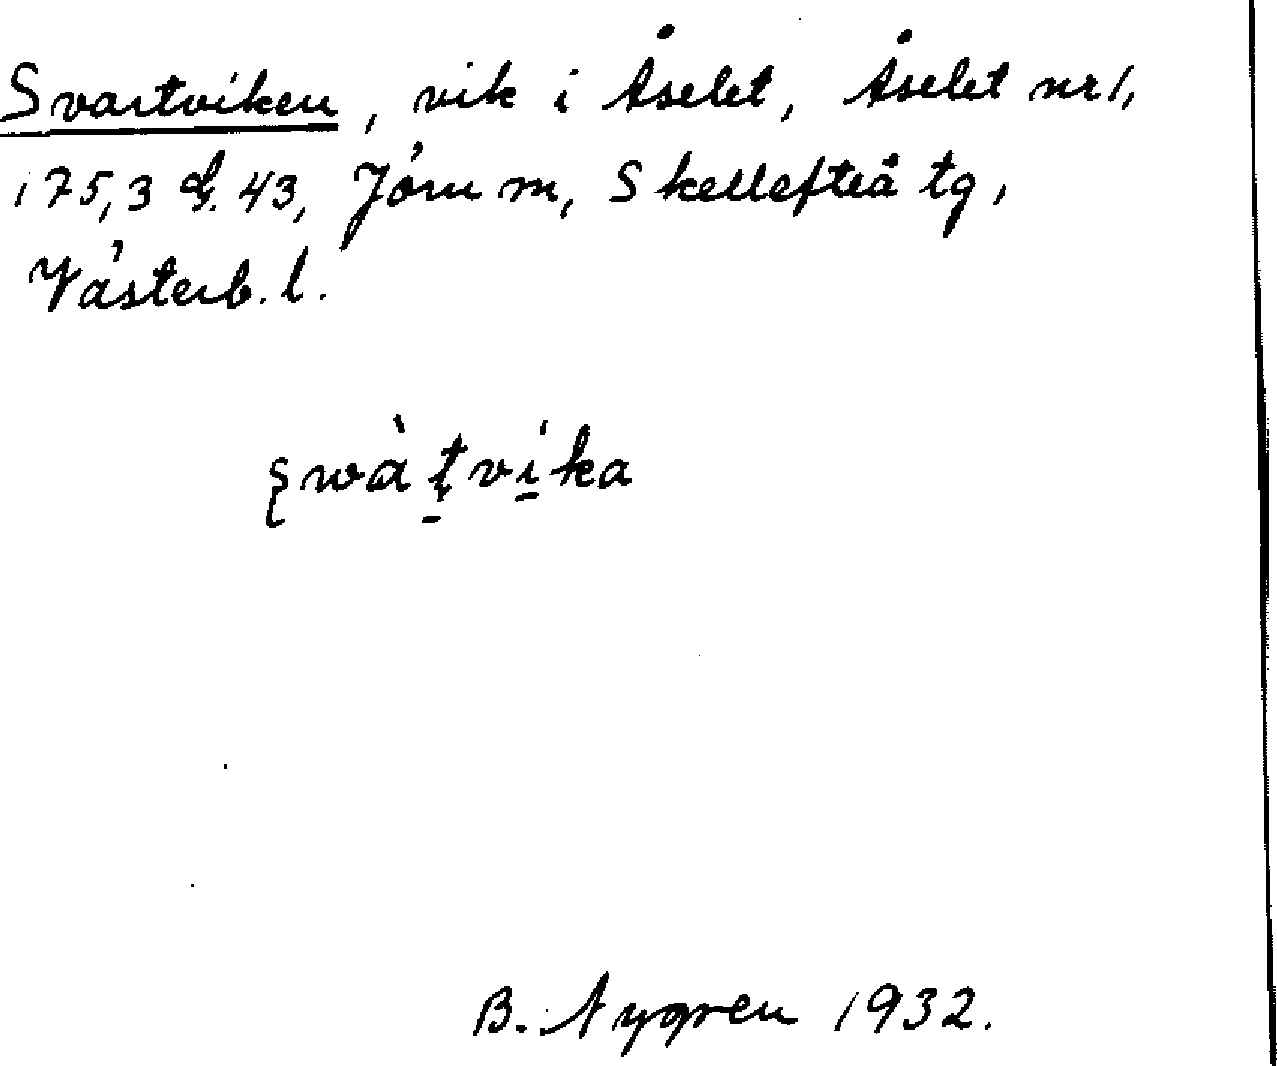 Svartviken, vik i Åselet, Åselet nr 1,
175,3 & 43, Jörn m, Skellefteå tg,
Västerb. l.
ʂwàṯvíka
B. Nygren 1932.